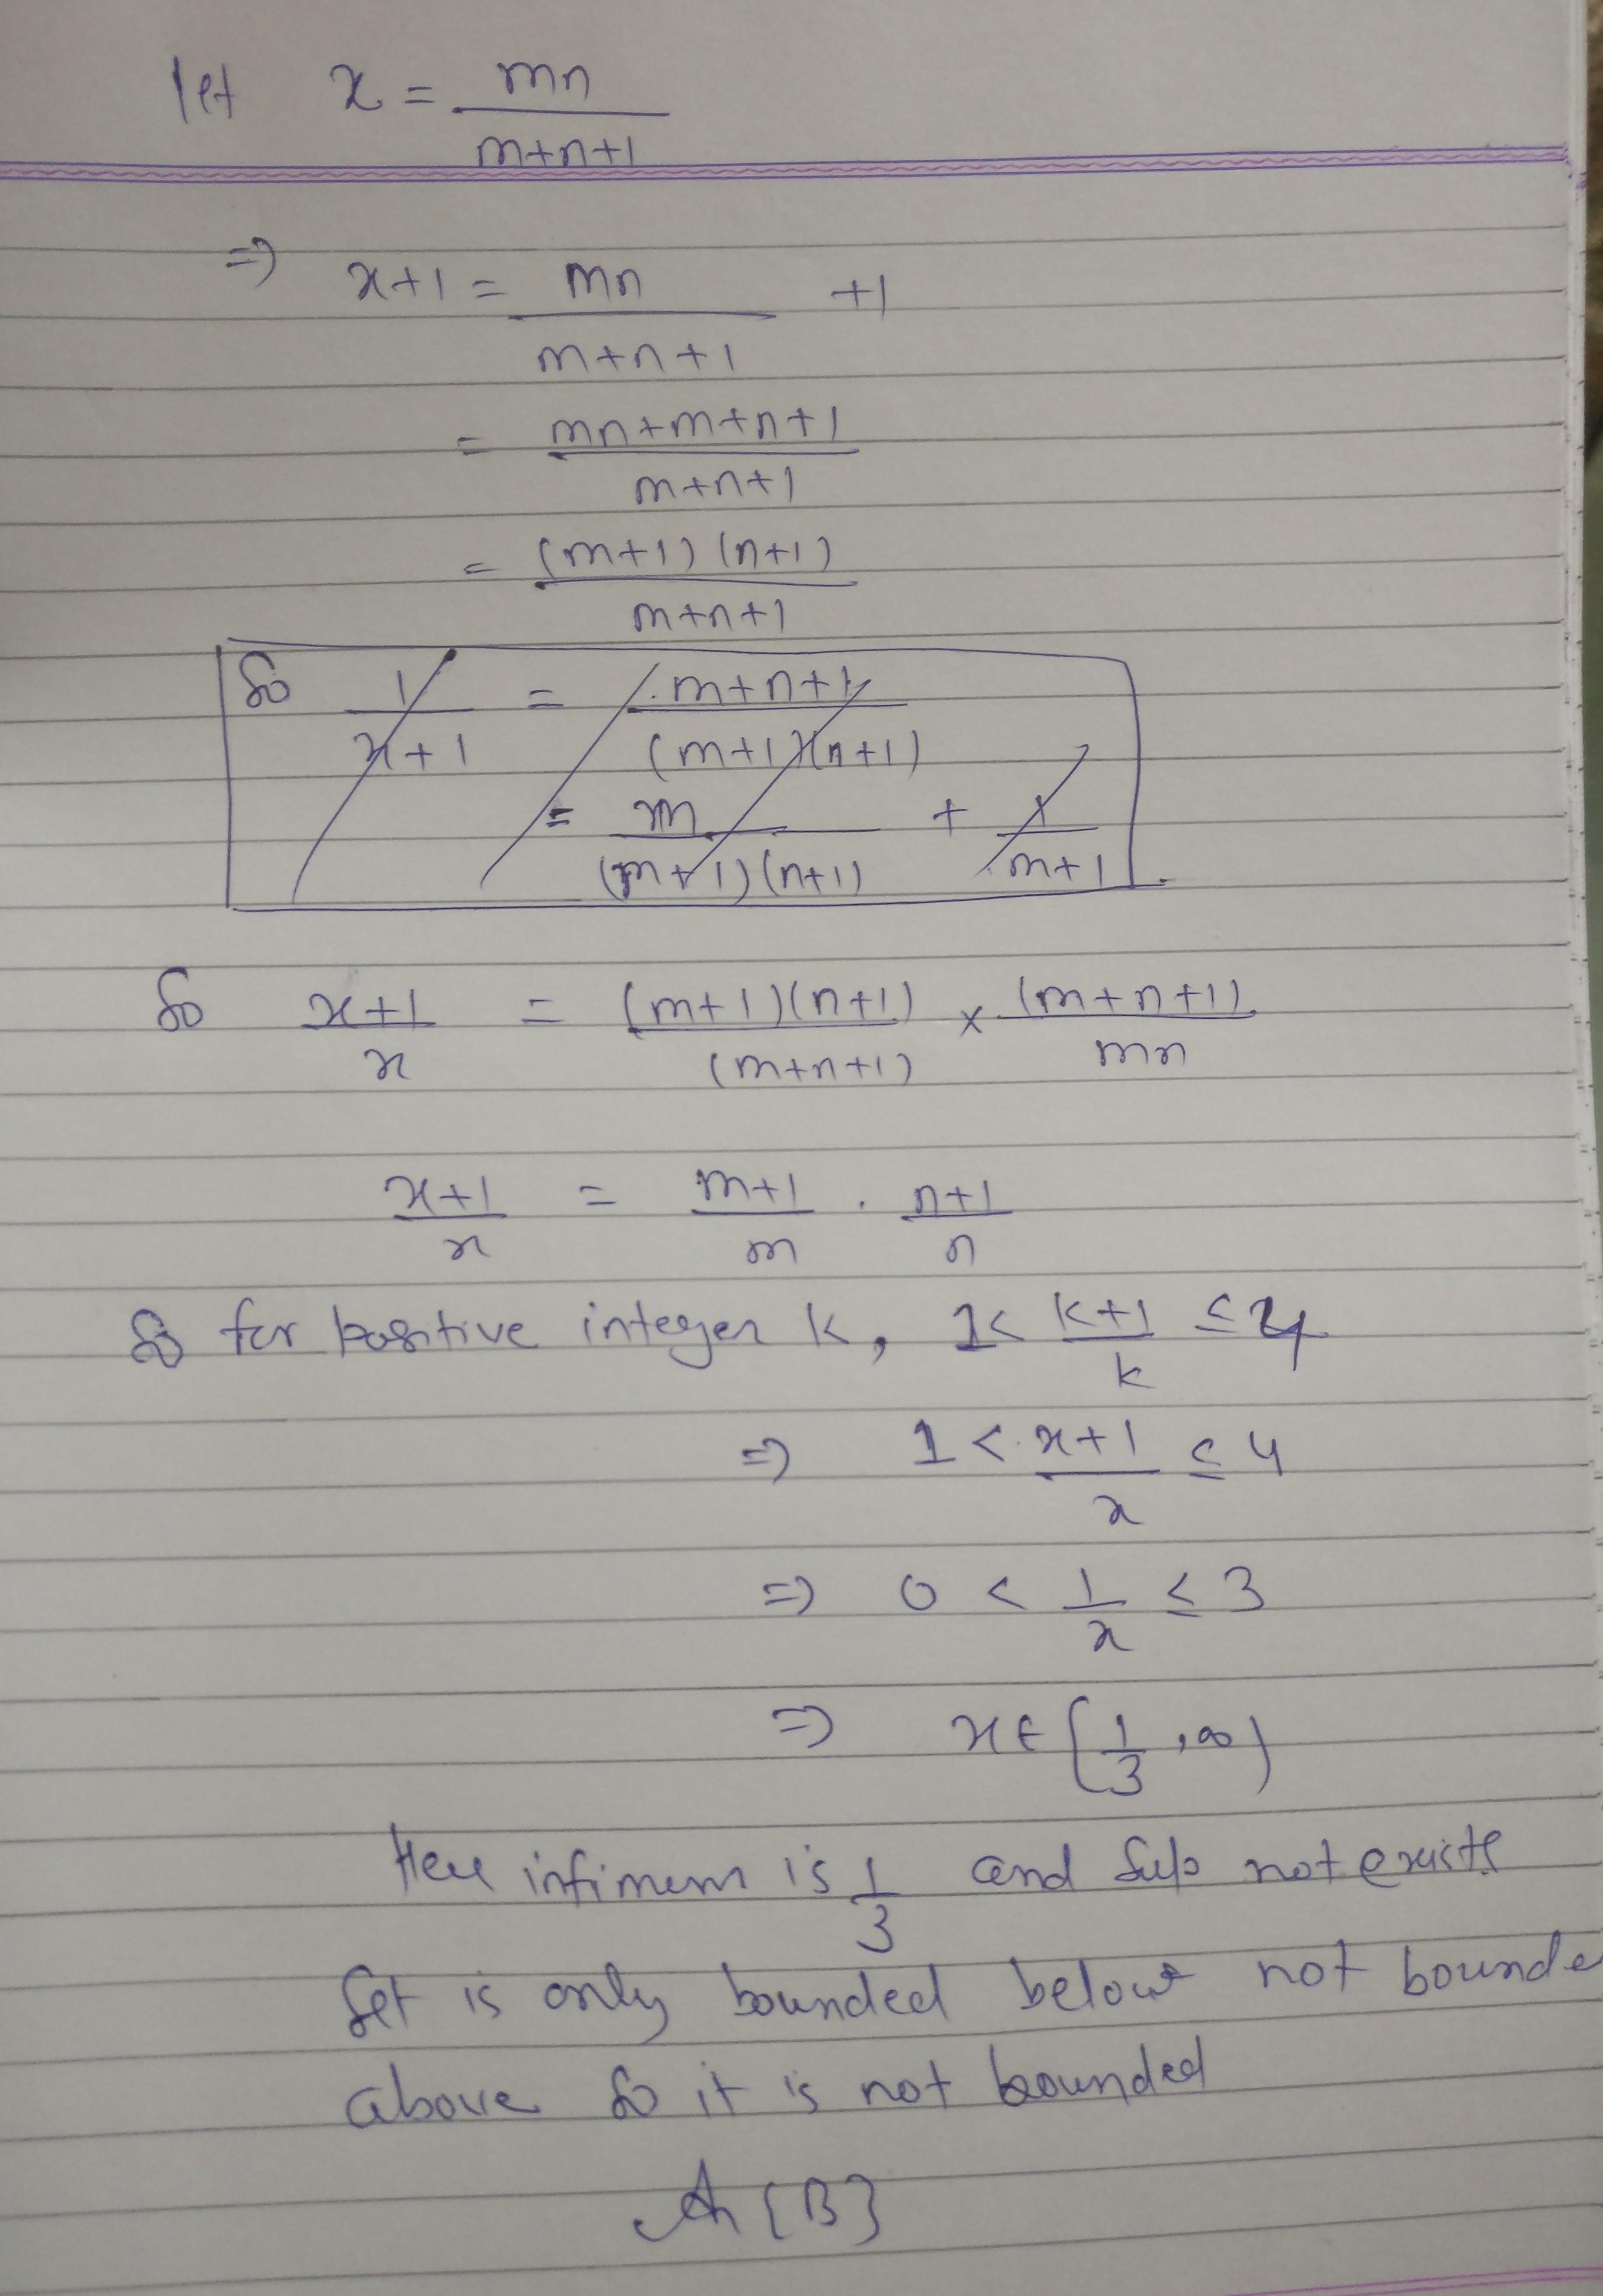 let x = mn / m+n+1
⇒ x+1 = mn / m+n+1 +1
= mn+m+n+1 / m+n+1
= (m+1)(n+1) / m+n+1
So 1 / x+1 = m+n+1 / (m+1)(n+1)
= m / (m+1)(n+1) + 1 / m+1
So x+1 / x = (m+1)(n+1) / (m+n+1) × (m+n+1) / mn
x+1 / x = m+1 / m . n+1 / n
So for positive integer k, 1 < k+1 / k ≤ 4
⇒ 1 < x+1 / x ≤ 4
⇒ 0 < 1 / x ≤ 3
⇒ x ∈ [1/3, ∞)
Here infimem is 1/3 and Sup not exists
Set is only bounded below not bounde
above So it is not bounded
An {B}